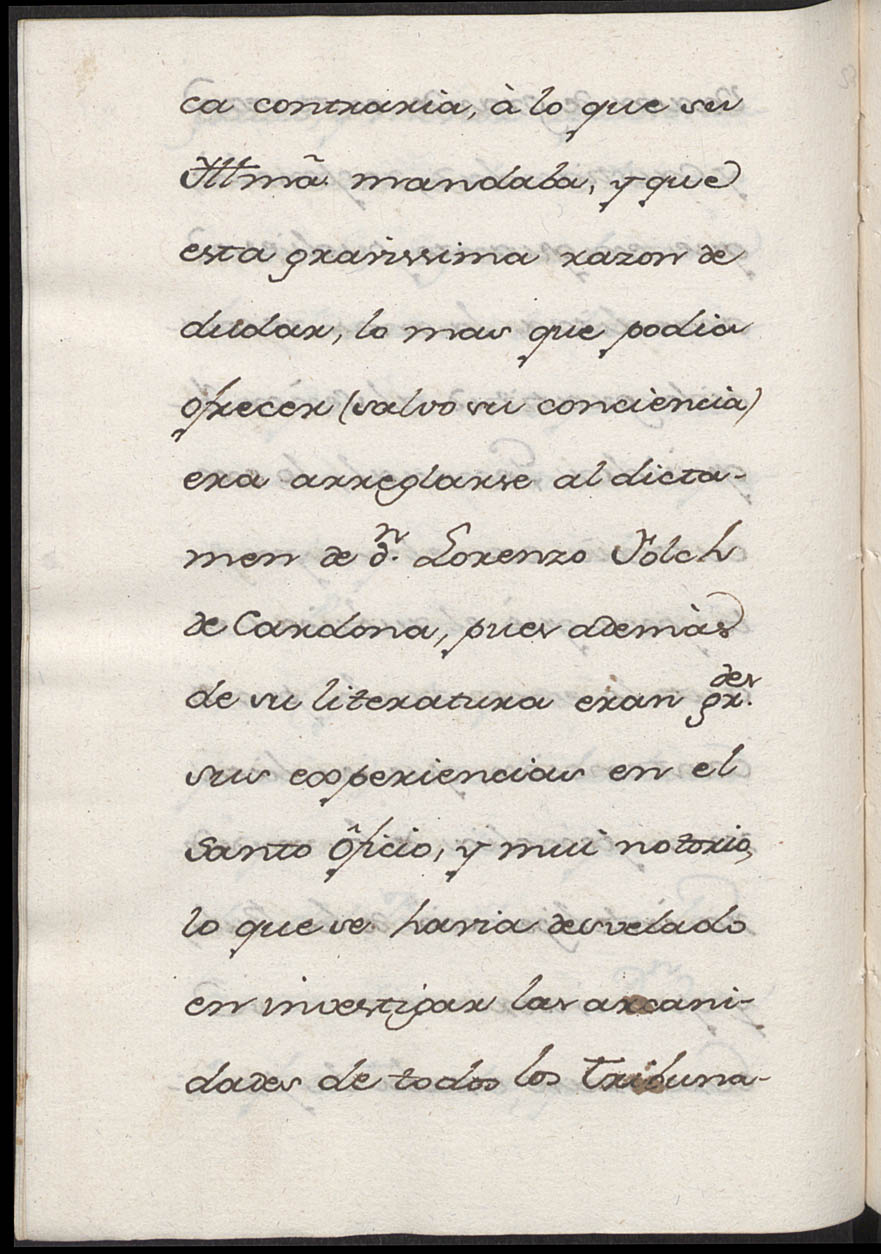 ca contraria, à lo que su
Illmã. mandaba, y que
esta gravissima razon de
dudar, lo mas que podia
ofrecer (salvo su conciencia)
era arreglarse al dicta-
men de dⁿ. Lorenzo Folch
de Cardona, pues ademàs
de su literatura eran gr.ᵈᵉˢ
sus experiencias en el
Santo Oficio, y mui notorio,
lo que se havia desvelado
en investigar las arcani-
dades de todos los Tribuna-